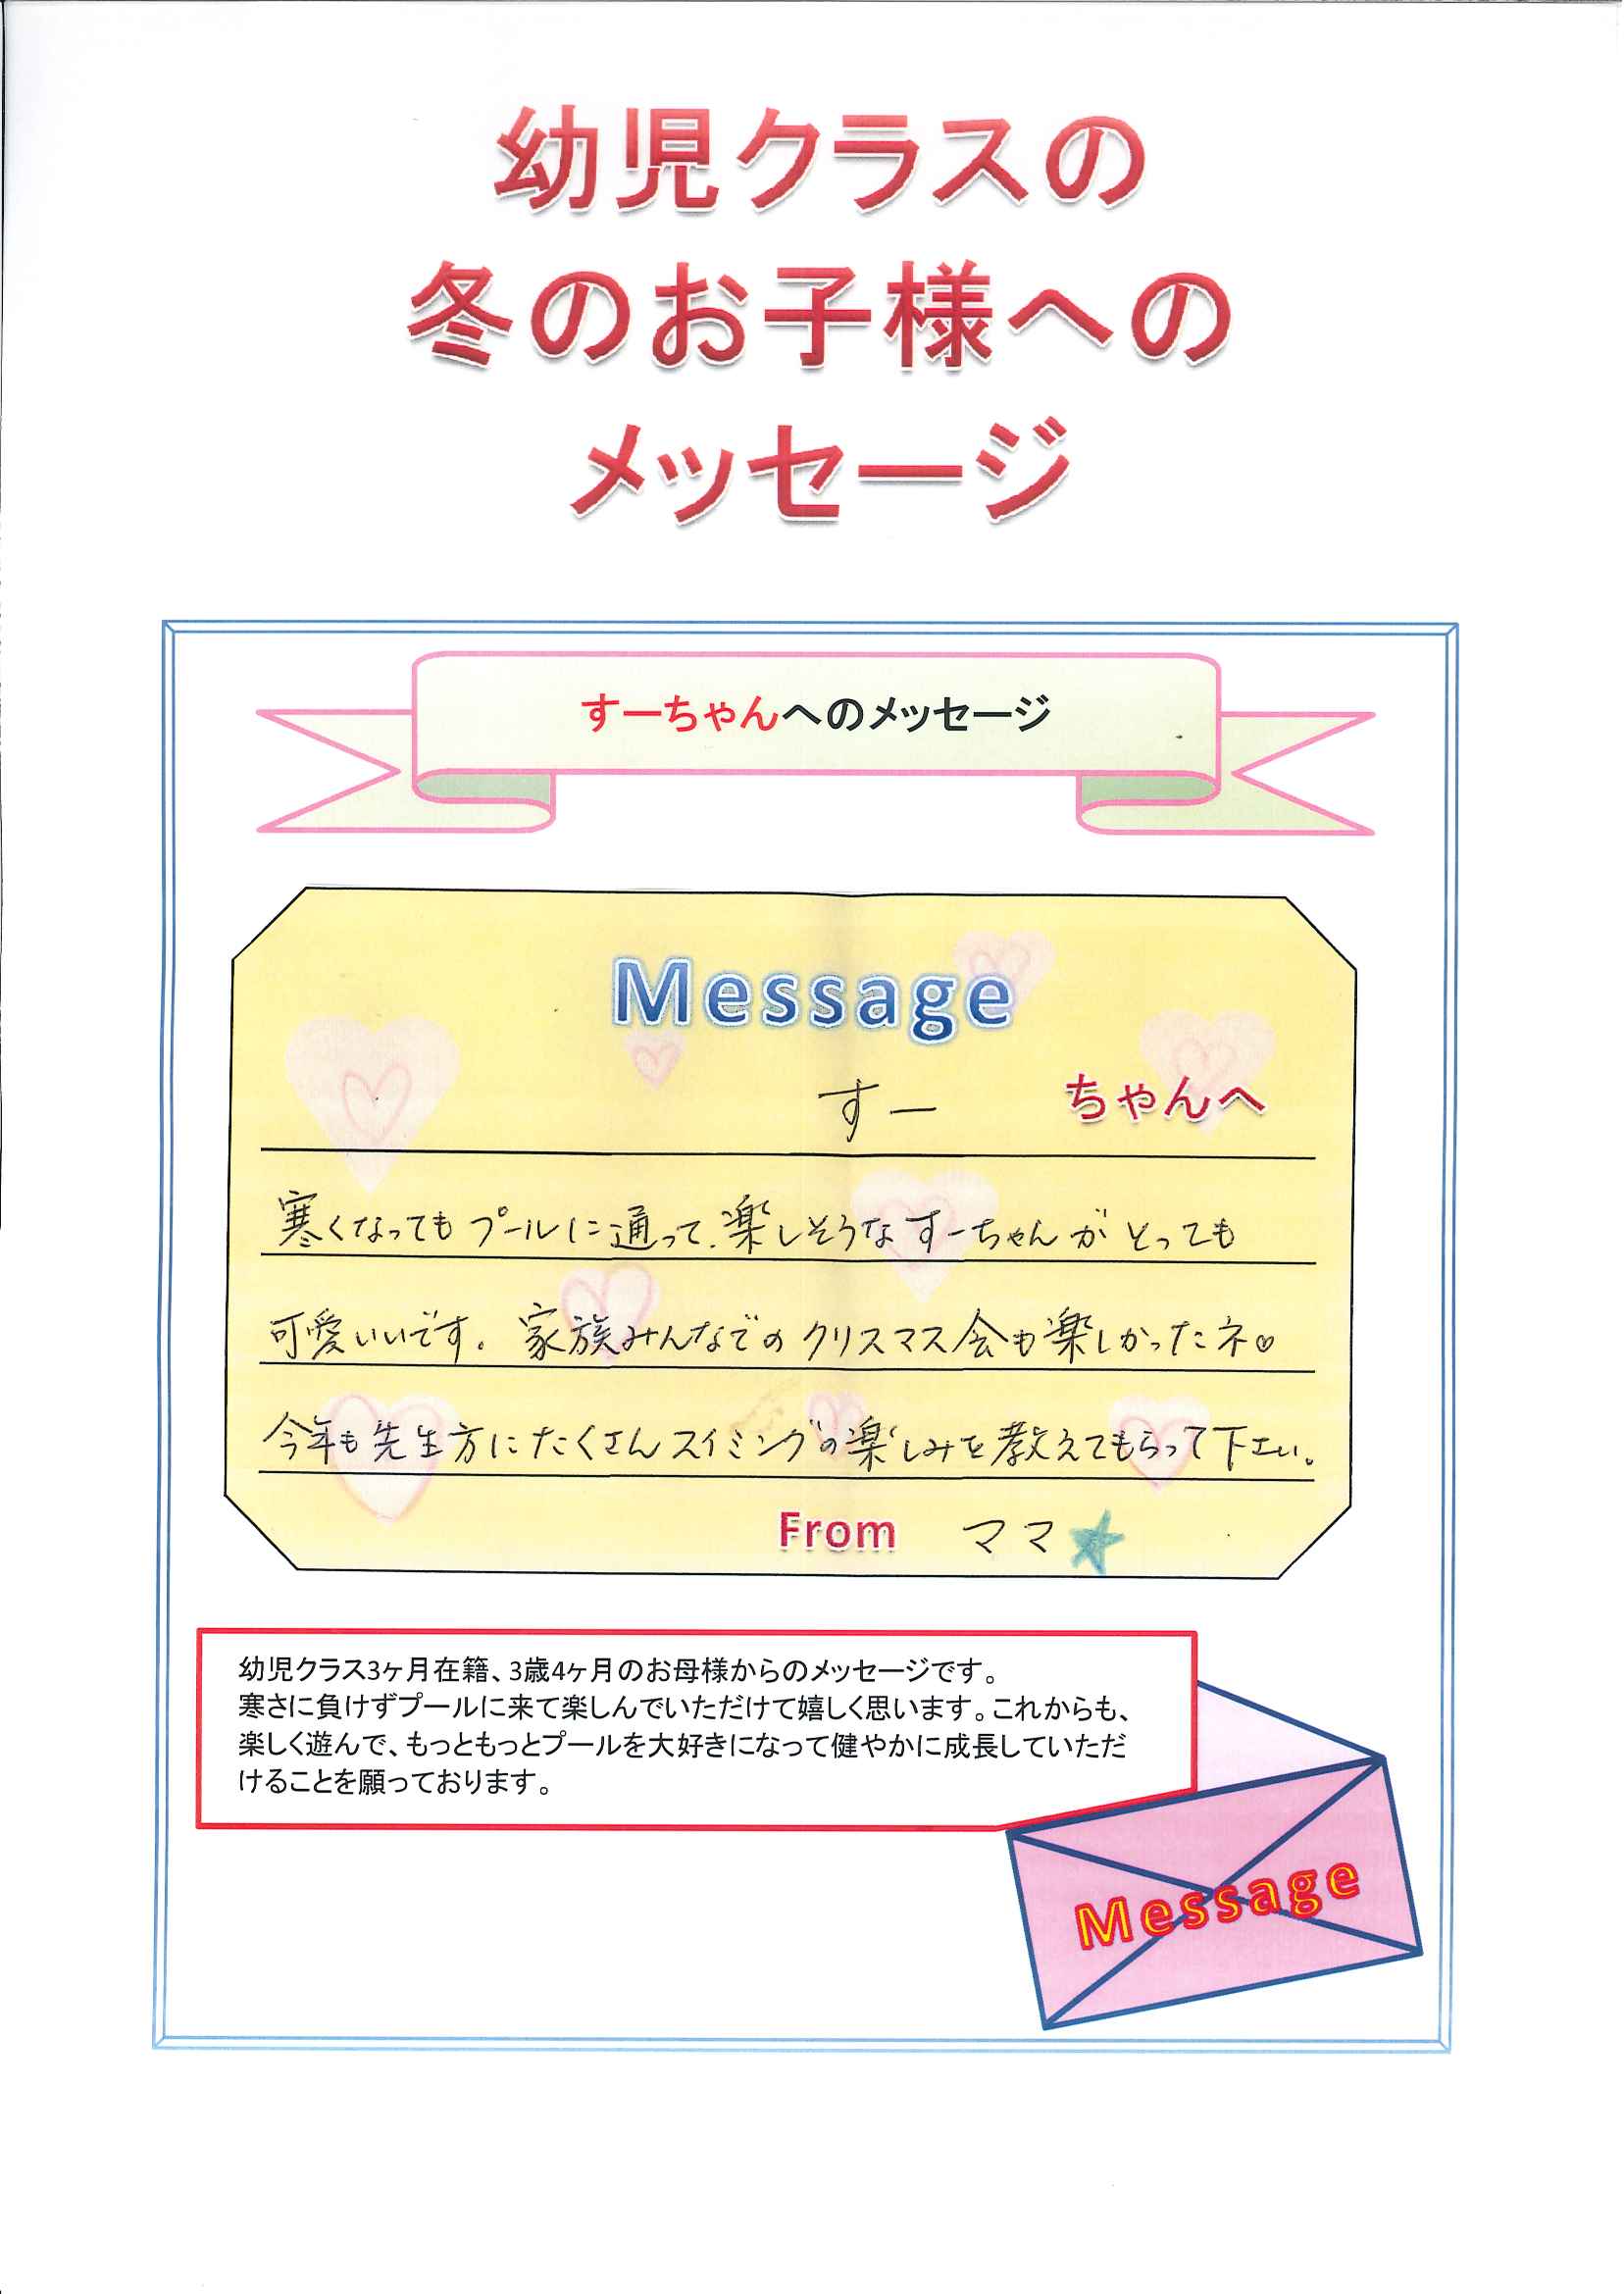 幼児クラスの
冬のお子様への
メッセージ
すーちゃんへのメッセージ
Message
すー ちゃんへ
寒くなってもプールに通って、楽しそうなすーちゃんがとっても
可愛いいです。家族みんなでのクリスマス会も楽しかったネ♡
今年も先生方にたくさんスイミングの楽しみを教えてもらって下エい。
From ママ★
幼児クラス3ヶ月在籍、3歳4ヶ月のお母様からのメッセージです。
寒さに負けずプールに来て楽しんでいただけて嬉しく思います。これからも、
楽しく遊んで、もっともっとプールを大好きになって健やかに成長していただ
けることを願っております。
Message